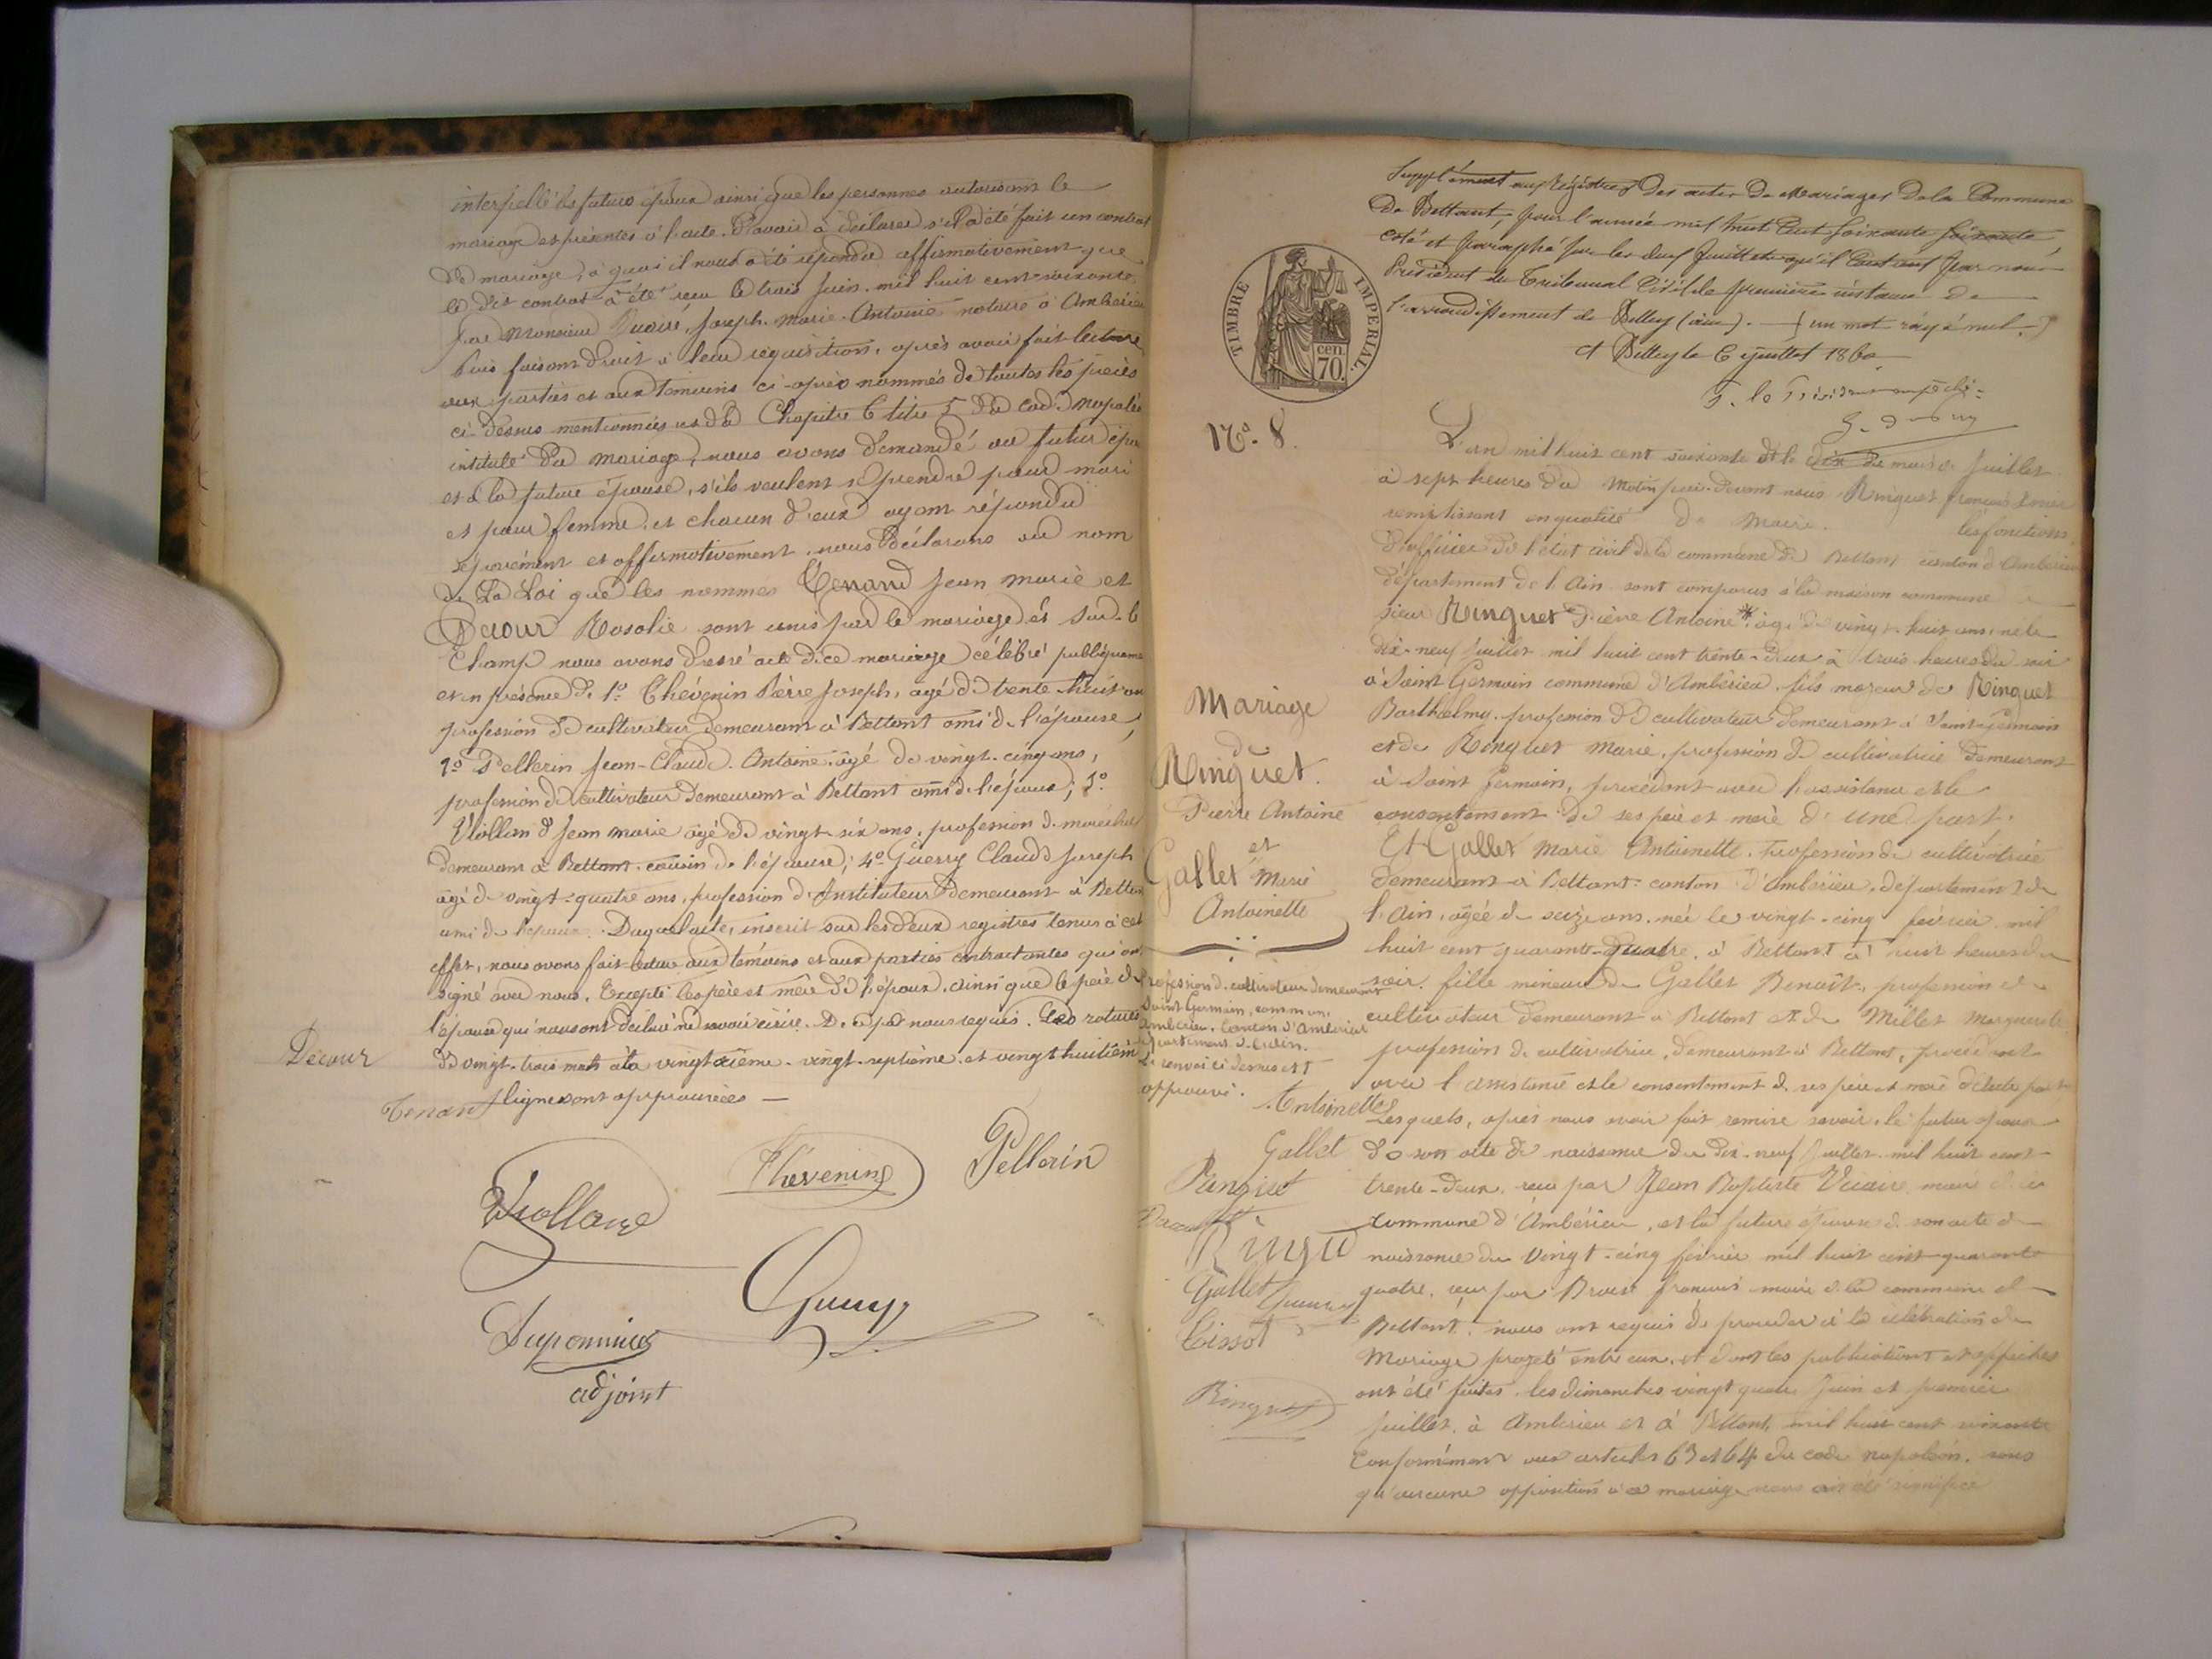 interpellé les futurs époux ainsi que les personnes autorisant le
mariage et présentes à l'acte. D'avoir à déclarer s'il a été fait un contrat
de mariage, à quoi il nous a été répondu affirmativement que
le dit contrat a été reçu le trois juin mil huit cent soixante
par Monsieur Joseph. Marie. Antoine notaire à Ambérieu
Puis faisant droit à leur réquisition, après avoir fait lecture
aux parties et aux témoins ci-après nommés de toutes les pièces
ci-dessus mentionnées et du Chapitre 6 titre 5 du Code Napoléon
intitulé du mariage, nous avons demandé au futur époux
et à la future épouse, s'ils veulent se prendre pour mari
et pour femme, et chacun d'eux ayant répondu
séparément et affirmativement, nous déclarons au nom
de La Loi que les nommés Tenand Jean Marie et
Decour Rosalie sont unis par le mariage et sur le
Champ nous avons dressé acte de ce mariage célébré publiqueme
et en présence de 1º Thévenin Pierre Joseph, agé de trente-huit ans
profession de cultivateur demeurant à Bettant ami de l'épouse,
2º Pellerin Jean-Claude. Antoine âgé de vingt-cinq ans,
profession de cultivateur demeurant à Bettant ami de l'époux; 3º
Viollan Jean marie âgé de vingt-six ans, profession de maréchal
demeurant à Bettant cousin de l'épouse; 4º Guerry Claude Joseph
âgé de vingt-quatre ans, profession d'Instituteur demeurant à Bettan
ami de l'époux. Duquel acte, inscrit sur les deux registres tenus à cet
effet, nous avons fait lecture aux témoins et aux parties contractantes qui ont
signé avec nous. Excepté les père et mère de l'époux, ainsi que le père de
l'épouse qui nous ont déclaré ne savoir écrire. De ce par nous requis. Les ratures
de vingt-trois mots à la vingt-sixième, vingt-septième et vingt huitièm
ligne sont approuvées —
Decour
Tenan
Thevenin Pellerin
Viollan
Guerry
adjoint
Supplément aux Régistres des actes de Mariages de la Commune
de Bettant, pour l'année mil huit Cent soixante soixante
coté et paraphé sur les deux feuillets qu'il Contient par nous
Président du Tribunal Civil de première instance de
l'arrondissement de Belley (ain). (un mot rayé nul)
A Belley le 6 juillet 1860
TIMBRE IMPERIAL.
70. cen.
Nº. 8.
L'an mil huit cent soixante et le dix du mois de Juillet
à sept heures du matin par-devant nous Ringuet François
remplissant en qualité de Maire. les fonctions
d'officier de l'état civil de la commune de Bettant canton d'Ambérieu
département de l'Ain sont comparus à la maison commune
sieur Ringuet Pierre Antoine * âgé de vingt-huit ans, né le
dix-neuf juillet mil huit cent trente-deux à trois heures du soir
à Saint Germain commune d'Ambérieu. fils majeur de Ringuet
Barthelmy. profession de cultivateur demeurant à Saint-Germain
et de Ringuet Marie, profession de cultivatrice demeurant
à Saint Germain, procédant avec l'assistance et le
consentement de ses père et mère d'une part.
Et Gallet Marie Antoinette. Profession de cultivatrice
demeurant à Bettant canton d'Ambérieu. département de
l'Ain, âgée de seize ans. née le vingt-cinq février mil
huit cent quarante-quatre, à Bettant à huit heures du
soir, fille mineure de Gallet Benoît, profession de
cultivateur demeurant à Bettant et de Millet Marguerite
profession de cultivatrice, demeurant à Bettant, procédant
avec l'assistance et le consentement de ses père et mère d'autre part
Lesquels, après nous avoir fait remise savoir, le futur époux
de son acte de naissance du dix-neuf juillet mil huit cent
trente-deux, reçu par Jean Baptiste Vicaire maire de la
commune d'Ambérieu, et la future épouse de son acte de
naissance du vingt-cinq février mil huit cent quarante
quatre, reçu par François maire de la commune de
Bettant, nous ont requis de procéder à la célébration du
Mariage projeté entre eux, et dont les publications et affiches
ont été faites les dimanches vingt quatre Juin et premier
juillet. à Ambérieu et à Bettant, mil huit cent soixante
Conformément aux articles 63 et 64 du code napoléon, sans
qu'aucune opposition à ce mariage nous ait été signifiée
Mariage
de
Ringuet.
Pierre Antoine
et
Gallet Marie
Antoinette
Profession de cultivateur demeurant
Saint Germain, commune
Ambérieu. Canton d'Ambérieu
département de l'ain.
Le renvoi ci dessus est
approuvé.
Antoinette
Gallet
Ringuet
Gallet Guerry
Tissot
Ringuet